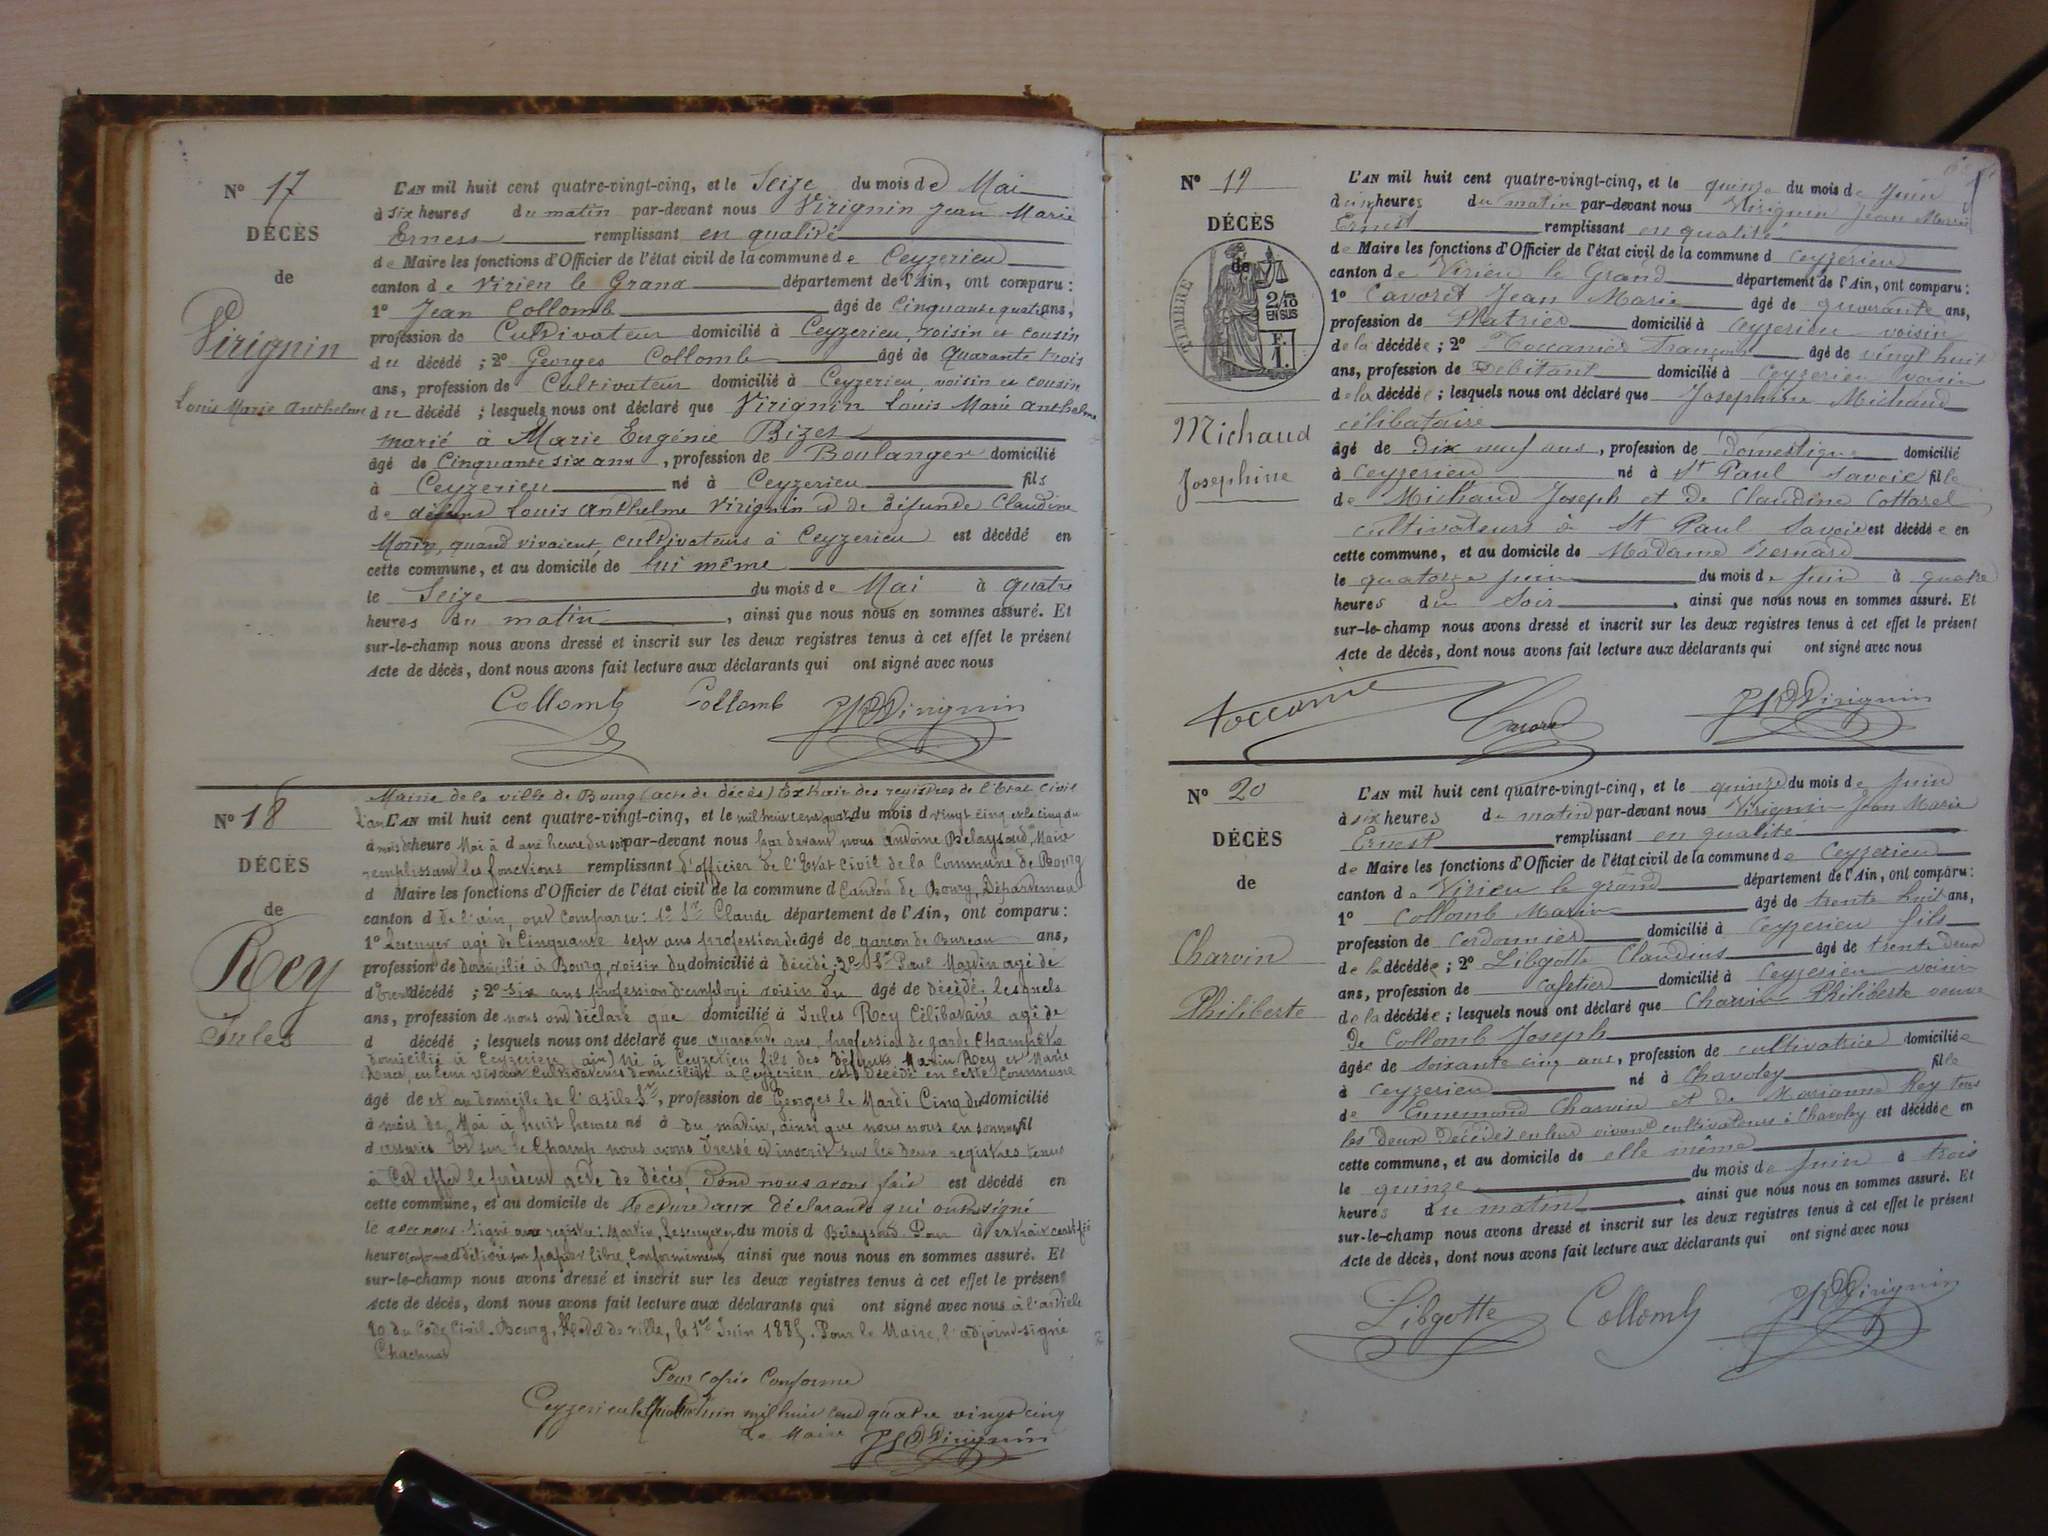 N° 17
DÉCÈS
de
Virignin
Louis Marie Anthelme
L'AN mil huit cent quatre-vingt-cinq, et le Seize du mois de Mai
à six heures du matin par-devant nous Virignin Jean Marie
Ernest remplissant en qualité
de Maire les fonctions d'Officier de l'état civil de la commune de Ceyzerieu
canton de Virieu le Grand département de l'Ain, ont comparu :
1° Jean Collomb âgé de Cinquante quatre ans,
profession de Cultivateur domicilié à Ceyzerieu, voisin et cousin
du décédé ; 2° Georges Collomb âgé de Quarante trois
ans, profession de Cultivateur domicilié à Ceyzerieu, voisin et cousin
du décédé ; lesquels nous ont déclaré que Virignin Louis Marie Anthelme
marié à Marie Eugénie Bizet
âgé de Cinquante six ans, profession de Boulanger domicilié
à Ceyzerieu né à Ceyzerieu fils
de défunt Louis Anthelme Virignin et de défunde Claudine
Morin, quand vivaient cultivateurs à Ceyzerieu est décédé en
cette commune, et au domicile de lui même
le Seize du mois de Mai à quatre
heures du matin, ainsi que nous nous en sommes assuré. Et
sur-le-champ nous avons dressé et inscrit sur les deux registres tenus à cet effet le présent
Acte de décès, dont nous avons fait lecture aux déclarants qui ont signé avec nous
Collomb Collomb Virignin
N° 18
DÉCÈS
de
Rey
Jules
Mairie de la ville de Bourg (acte de décès) Extrait des registres de l'Etat Civil
L'an L'AN mil huit cent quatre-vingt-cinq, et le mil huit cent quatre du mois d vingt cinq et le cinq du
d mois de heure Mai à d une heure du soir par-devant nous par devant nous Antoine Belaysoud, Maire
remplissant les fonctions remplissant d'officier de l'Etat Civil de la Commune de Bourg
d Maire les fonctions d'Officier de l'état civil de la commune d Canton de Bourg, Département
canton d de l'ain, ont comparu: 1° Sr Claude département de l'Ain, ont comparu :
1° Lescuyer agé de Cinquante sept ans profession de âgé de garçon de Bureau ans,
profession de domicilié à Bourg, voisin du domicilié à décédé; 2° Sr Paul Martin agé de
d trente décédé ; 2° six ans profession d'employé voisin du âgé de décédé, lesquels
ans, profession de nous ont déclaré que domicilié à Jules Rey Célibataire agé de
d décédé ; lesquels nous ont déclaré que quarante ans, profession de garde Champêtre
domicilié à Ceyzerieu (ain) Né à Ceyzerieu fils des défunts Marin Rey et Marie
en leur vivant Cultivateurs domiciliés à Ceyzerieu est décédé en cette Commune
âgé de et au domicile de l'asile St, profession de Georges le Mardi Cinq du domicilié
à mois de Mai à huit heures né à du matin, ainsi que nous nous en sommes fil
d assurés Et sur le Champ nous avons dressé et inscrit sur les deux registres tenus
à Cet effet le présent acte de décès, dont nous avons fait est décédé en
cette commune, et au domicile de lecture aux déclarants qui ont signé
le avec nous Signé au registre: Martin, Lescuyer, du mois d Belaysoud. Pour à extrait certifié
heure conforme d délivré sur papier libre, Conformément ainsi que nous nous en sommes assuré. Et
sur-le-champ nous avons dressé et inscrit sur les deux registres tenus à cet effet le présent
Acte de décès, dont nous avons fait lecture aux déclarants qui ont signé avec nous à l'article
du Code Civil. Bourg, Hotel de ville, le 1er Juin 1885. Pour le Maire, l'adjoint signé
Pour copie Conforme
Ceyzerieu le quatre Juin mil huit cent quatre vingt cinq
Le Maire Virignin
N° 19
DÉCÈS
de
TIMBRE
2/10
EN SUS
F.
1.
Michaud
Josephine
L'AN mil huit cent quatre-vingt-cinq, et le quinze du mois de Juin
à six heures du matin par-devant nous Virignin Jean Marie
Ernest remplissant en qualité
de Maire les fonctions d'Officier de l'état civil de la commune d Ceyzerieu
canton de Virieu le Grand département de l'Ain, ont comparu :
1° Cavoret Jean Marie âgé de quarante ans,
profession de Platrier domicilié à Ceyzerieu voisin
de la décédée ; 2° Toccanier François âgé de vingt huit
ans, profession de Debitant domicilié à Ceyzerieu voisin
de la décédée ; lesquels nous ont déclaré que Josephine Michaud
célibataire
âgé de Dix neuf ans, profession de Domestique domicilié
à Ceyzerieu né à St Paul Savoie fille
de Michaud Joseph et de Claudine Cottarel
cultivateurs à St Paul Savoie est décédée en
cette commune, et au domicile de Madame Bernard
le quatorze Juin du mois de Juin à quatre
heures du Soir, ainsi que nous nous en sommes assuré. Et
sur-le-champ nous avons dressé et inscrit sur les deux registres tenus à cet effet le présent
Acte de décès, dont nous avons fait lecture aux déclarants qui ont signé avec nous
Toccanie Cavoret Virignin
N° 20
DÉCÈS
de
Charvin
Philiberte
L'AN mil huit cent quatre-vingt-cinq, et le quinze du mois de Juin
à six heures du matin par-devant nous Virignin Jean Marie
Ernest remplissant en qualité
de Maire les fonctions d'Officier de l'état civil de la commune de Ceyzerieu
canton de Virieu le grand département de l'Ain, ont comparu :
1° Collomb Marin âgé de trente huit ans,
profession de Cordonnier domicilié à Ceyzerieu fils
de la décédée ; 2° Libgotte Claudius âgé de trente deux
ans, profession de cafetier domicilié à Ceyzerieu voisin
de la décédée ; lesquels nous ont déclaré que Charvin Philiberte veuve
De Collomb Joseph
âgée de soixante cinq ans, profession de cultivatrice domiciliée
à Ceyzerieu né à Chavoley fille
de Ennemond Charvin et de Marianne Rey tous
les deux décédés en leur vivant cultivateurs à Chavoley est décédée en
cette commune, et au domicile de elle même
le quinze du mois de Juin à trois
heures du matin, ainsi que nous nous en sommes assuré. Et
sur-le-champ nous avons dressé et inscrit sur les deux registres tenus à cet effet le présent
Acte de décès, dont nous avons fait lecture aux déclarants qui ont signé avec nous
Libgotte Collomb Virignin